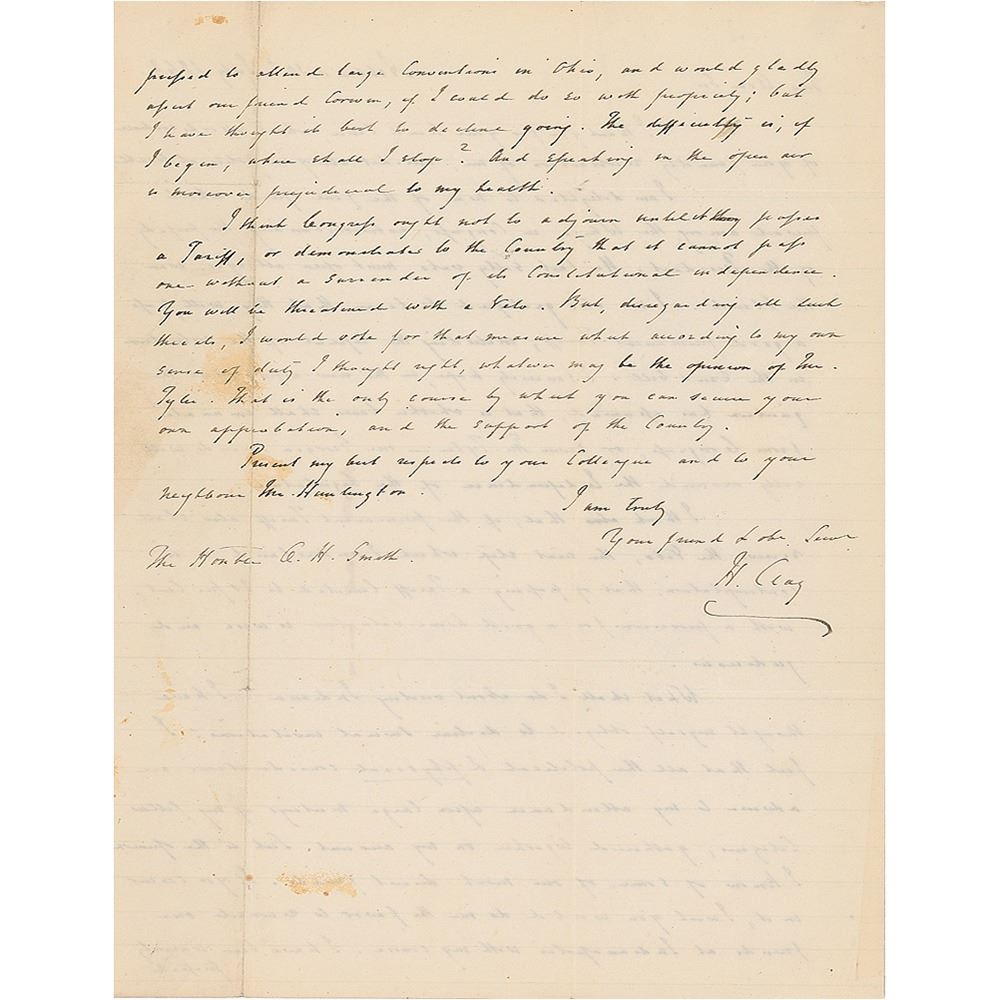 pressed to attend large Conventions in Ohio, and would gladly
assist our friend Corwin, if I could do so with propriety; but
I have thought it best to decline going. The difficulty is, if
I begin, where shall I stop? And speaking in the open air
is moreover prejudicial to my health.
I think Congress ought not to adjourn until it passes
a Tariff, or demonstrates to the Country that it cannot pass
one without a surrender of its Constitutional independence.
You will be threatened with a Veto. But, disregarding all such
threats, I would vote for that measure what according to my own
sense of duty I thought right, whatever may be the opinion of Mr.
Tyler. That is the only course by which you can secure your
own approbation, and the support of the Country.
Present my best respects to your Colleague and to your
neighbour Mr. Huntington.
I am truly
Your friend & obt. Servt
The Honble O. H. Smith.
H. Clay